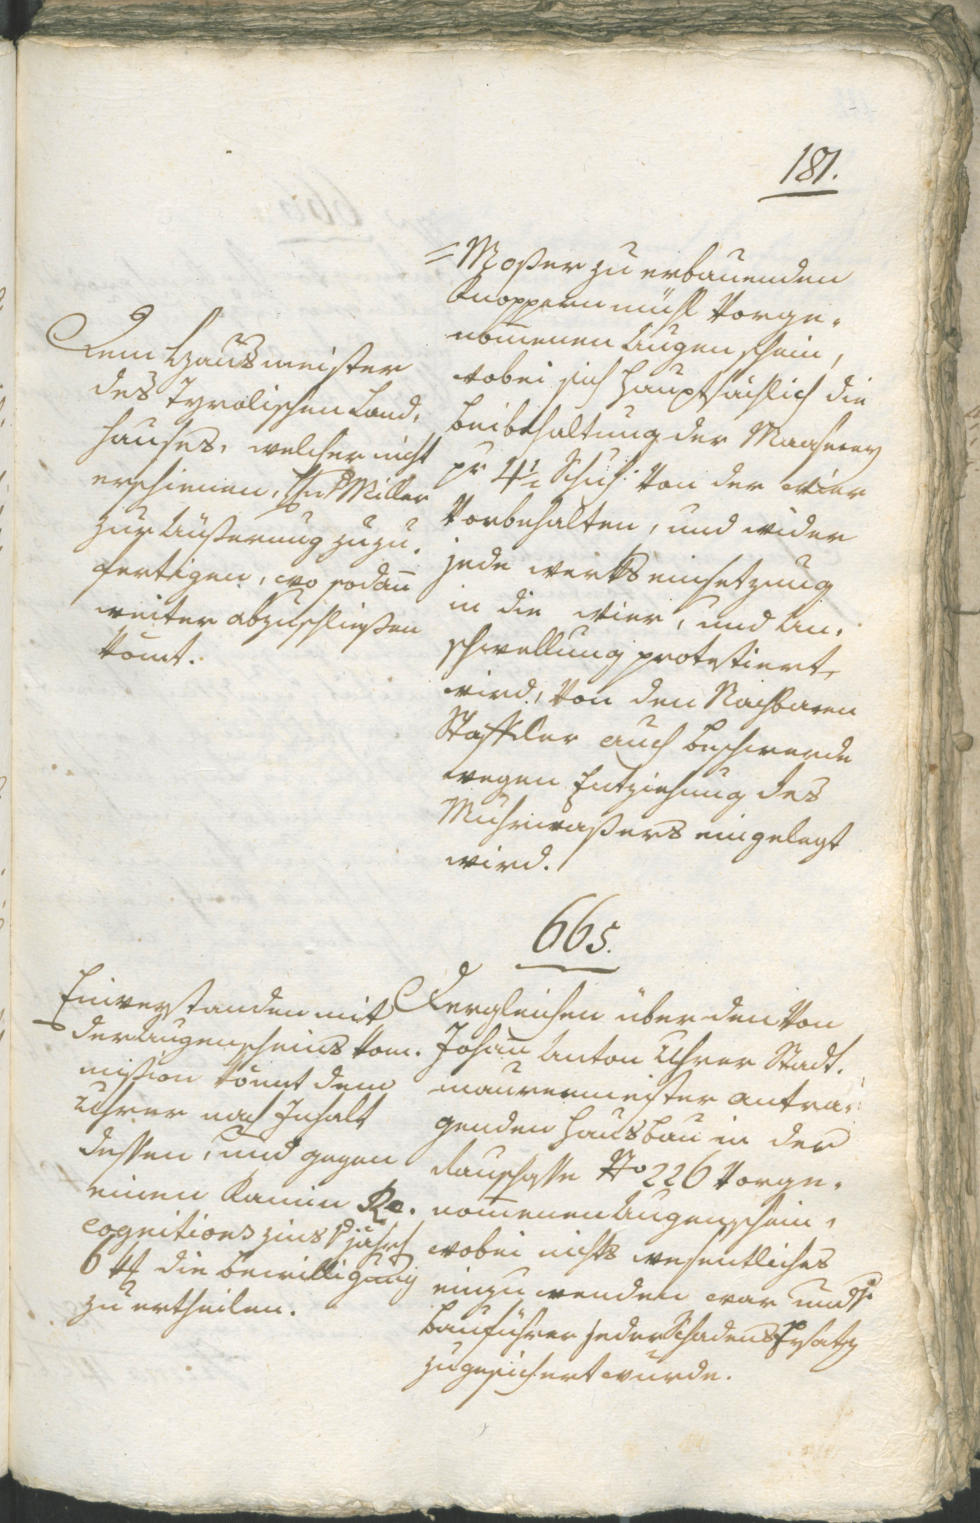 181.
Dem Hausmeister
des Tyrolischen Land¬
hauses, welcher nicht
erschienen, H. Miller
zur Äußerung zuzu¬
fertigen, wo sodan̄
weiter abzuschließen
kömt.
=Moßer zu erbauenden
Knoppernmühl vorge¬
nom̄enen Augenschein,
wobei sich hauptsächlich die
Beibehaltung der
pr 4½ Schuh von der Wier
vorbehalten, und wider
jede Werkseinsetzung
in die Wier, und An¬
schwellung protestiert
wird, von den Nachbaren
Staffler auch Beschwerde
wegen Entziehung des
Muhrwaßers eingelegt
wird.
665.
Einverstanden mit
der Augenscheins Kom¬
mißion kömt dem
Uhrer nach Inhalt
dessen, und gegen
einen Kamin Re¬
cognitionszins jährl
6 die Bewilligung
zu ertheilen.
Dergleichen über den von
Johan̄ Anton Uhrer Stadt¬
maurermeister antra¬
genden Hausbau in der
No 226 vorge¬
nom̄enen Augenschein,
wobei nichts wesentliches
einzuwenden war und
Bauführer jeder Schadens Ersatz
zugesichert wurde.